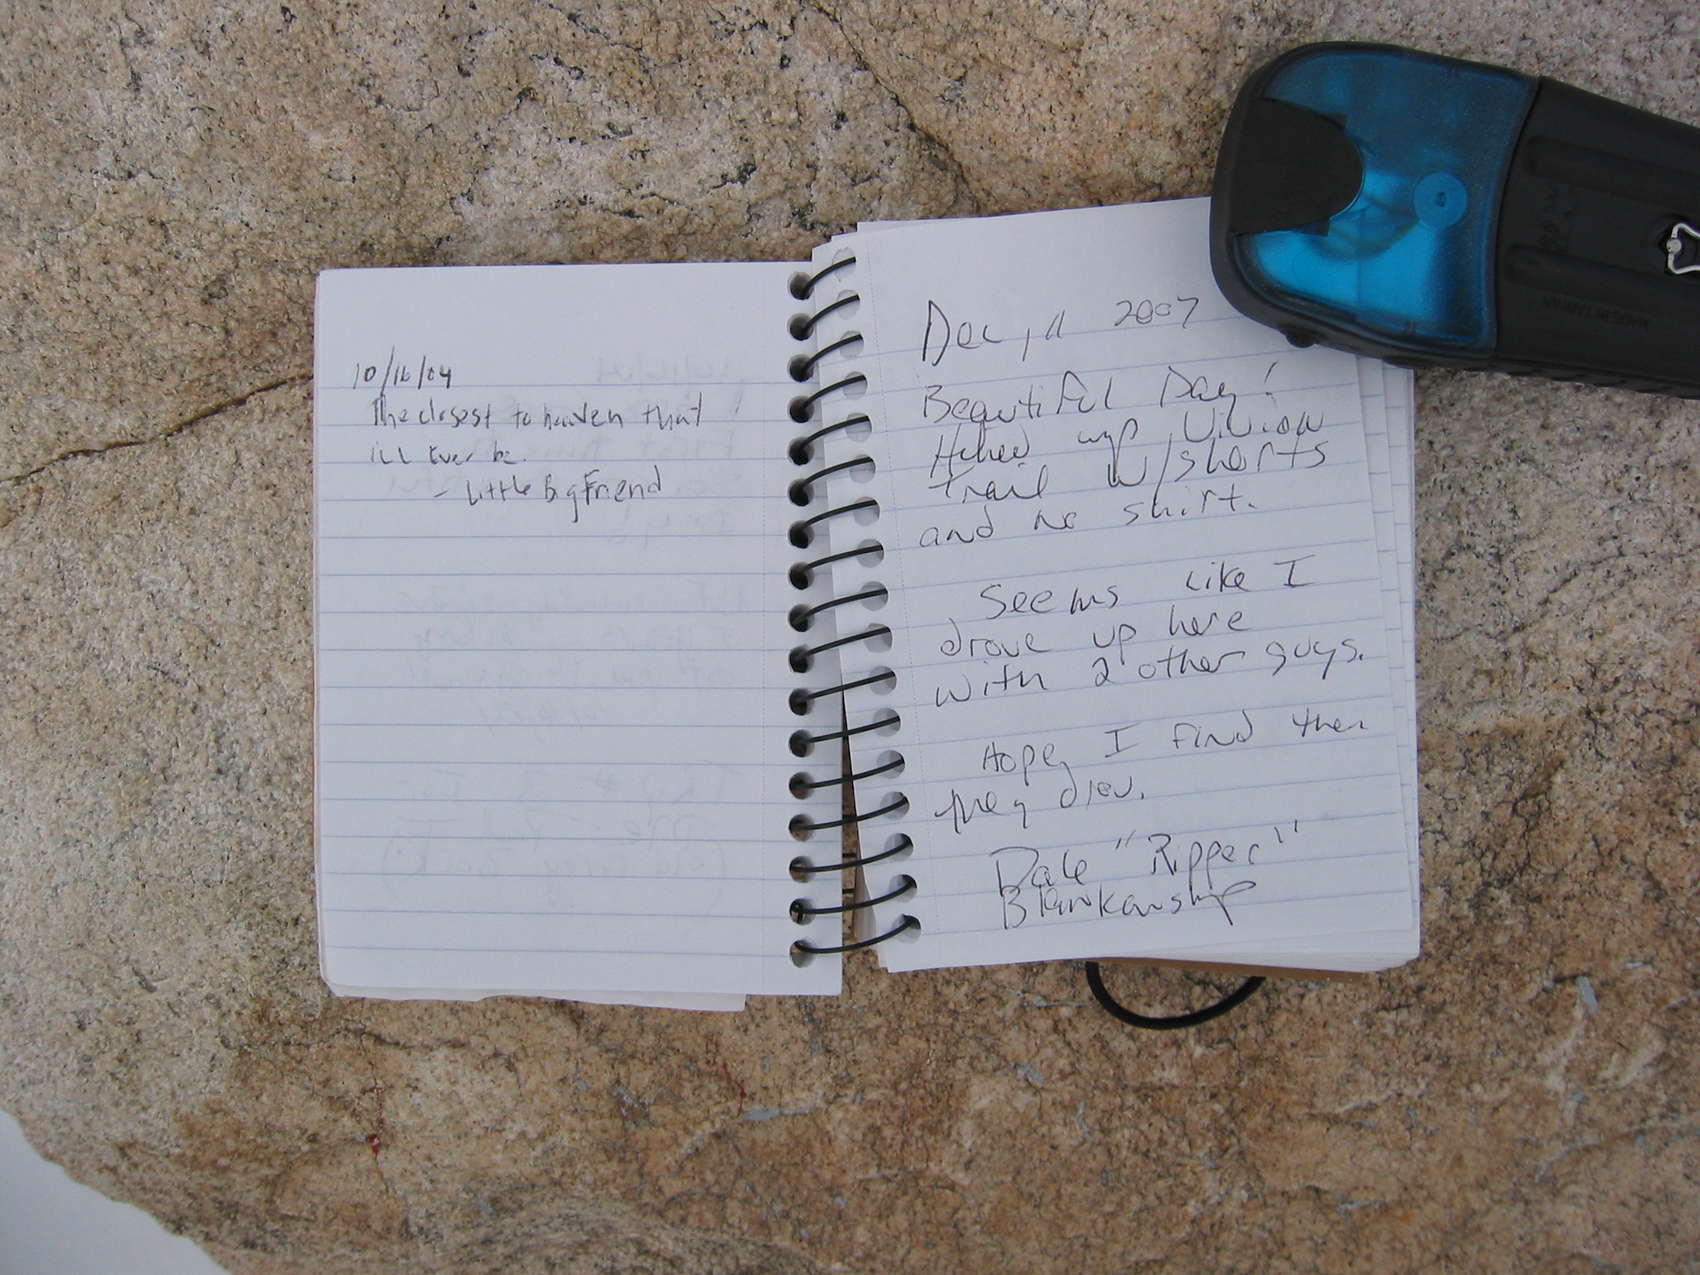 10/16/04
The closest to haven that
ill ever be.
- Little Big Friend
Dec, 11 2007
Beautiful Day!
Hiked up Union
trail w/shorts
and no shirt.
Seems like I
drove up here
with 2 other guys.
Hope I find them
they
Dale "Ripper"
Blankanship
MADE IN TAIWAN